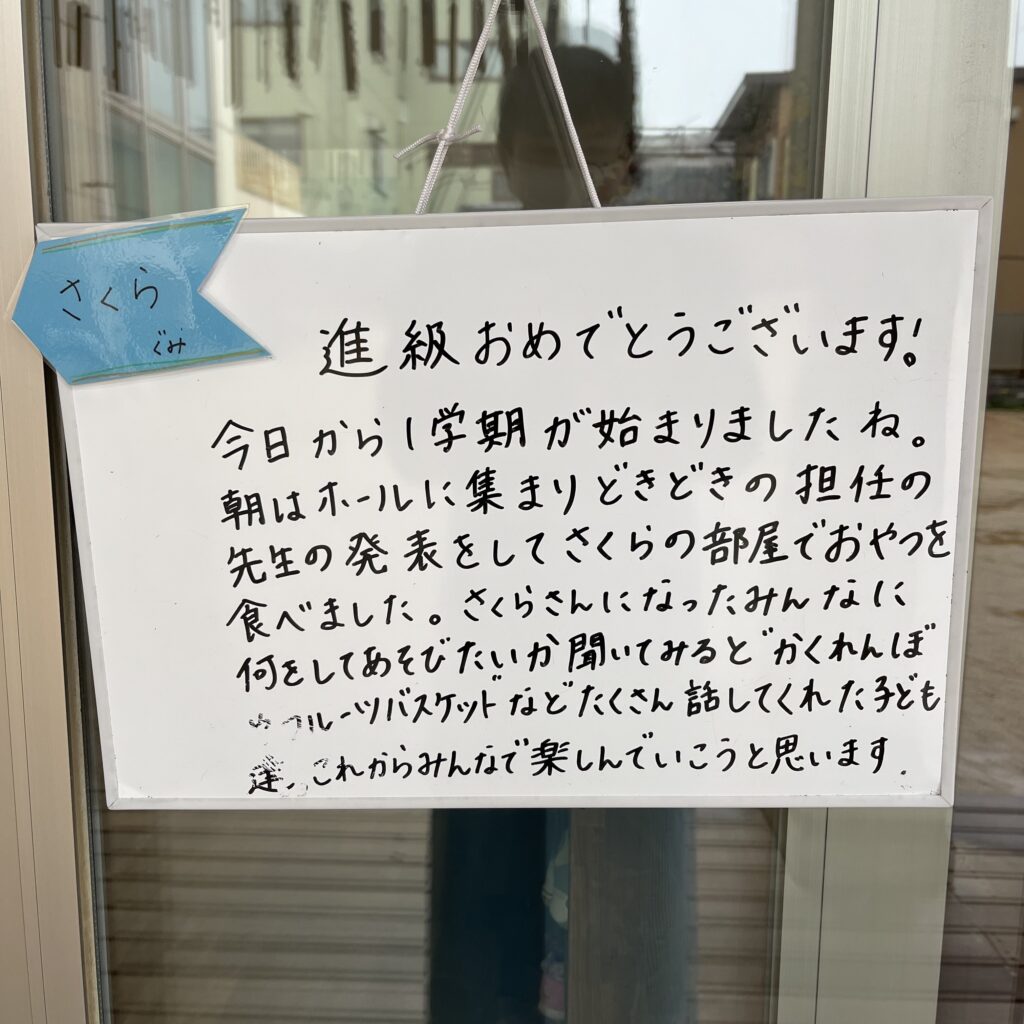 さくら
ぐみ
進級おめでとうございます!
今日から1学期が始まりましたね。
朝はホールに集まりどきどきの担任の
先生の発表をしてさくらの部屋でおやつを
食べました。さくらさんになったみんなに
何をしてあそびたいか聞いてみると"かくれんぼ
フルーツバスケットなどたくさん話してくれた子ども
達、これからみんなで楽しんでいこうと思います.